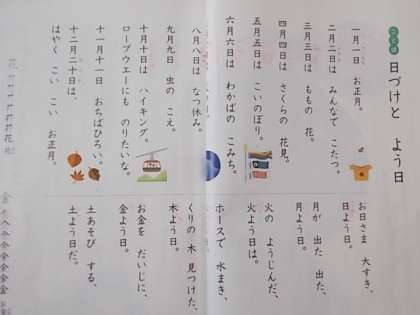 日づけと よう日
一月一日 お正月。
二月二日は みんなで こたつ。
三月三日は ももの 花。
四月四日は さくらの 花見。
五月五日は こいのぼり。
六月六日は わかばの こみち。
八月八日は なつ休み。
九月九日 虫の こえ。
十月十日は ハイキング。
ロープウエーにも のりたいな。
十一月十一日 おちばひろい。
十二月二十日は、
はやく こい こい お正月。
お日さま 大すき、
日よう日。
月が 出た 出た、
月よう日。
火の ようじんだ、
火よう日は。
ホースで 水まき、
くりの 木 見つけた、
木よう日。
お金を だいじに、
金よう日。
土あそび する、
土よう日だ。
花